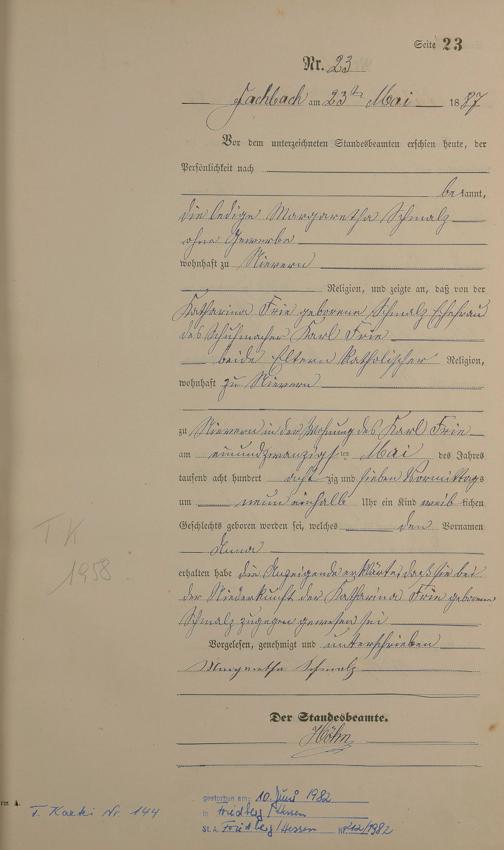 Seite 23
Nr. 23
Fachbach am 23ten Mai 1887
Vor dem unterzeichneten Standesbeamten erschien heute, der
Persönlichkeit nach
bekannt,
die ledige Margaretha Schmalz
ohne Gewerbe
wohnhaft zu Nievern
Religion, und zeigte an, daß von der
Katharina Frie geborene Schmalz Ehefrau
des Schuhmacher Karl Frie
beide Eltern katholischer Religion,
wohnhaft zu Nievern
zu Nievern in der Wohnung des Karl Frie
am einundzwanzigsten Mai des Jahres
tausend acht hundert achtzig und sieben Vormittags
um neun einhalb Uhr ein Kind weiblichen
Geschlechts geboren worden sei, welches den Vornamen
Anna
erhalten habe die Anzeigende erklärte, daß sie bei
der Niederkunft der Katharina Frie geborene
Schmalz zugegen gewesen sei
Vorgelesen, genehmigt und unterschrieben
Margaretha Schmalz
Der Standesbeamte.
Höhn
TK
1958
rm A.
T. Kartei Nr. 144
gestorben am: 10. Juni 1982
in Friedberg/Hessen
St. A. Friedberg/Hessen Nr. 212/1982